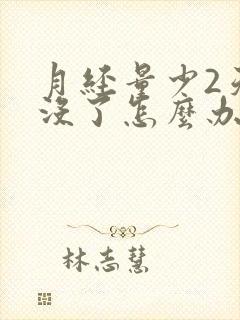 月經量少2天
沒了怎麼办
林志慧